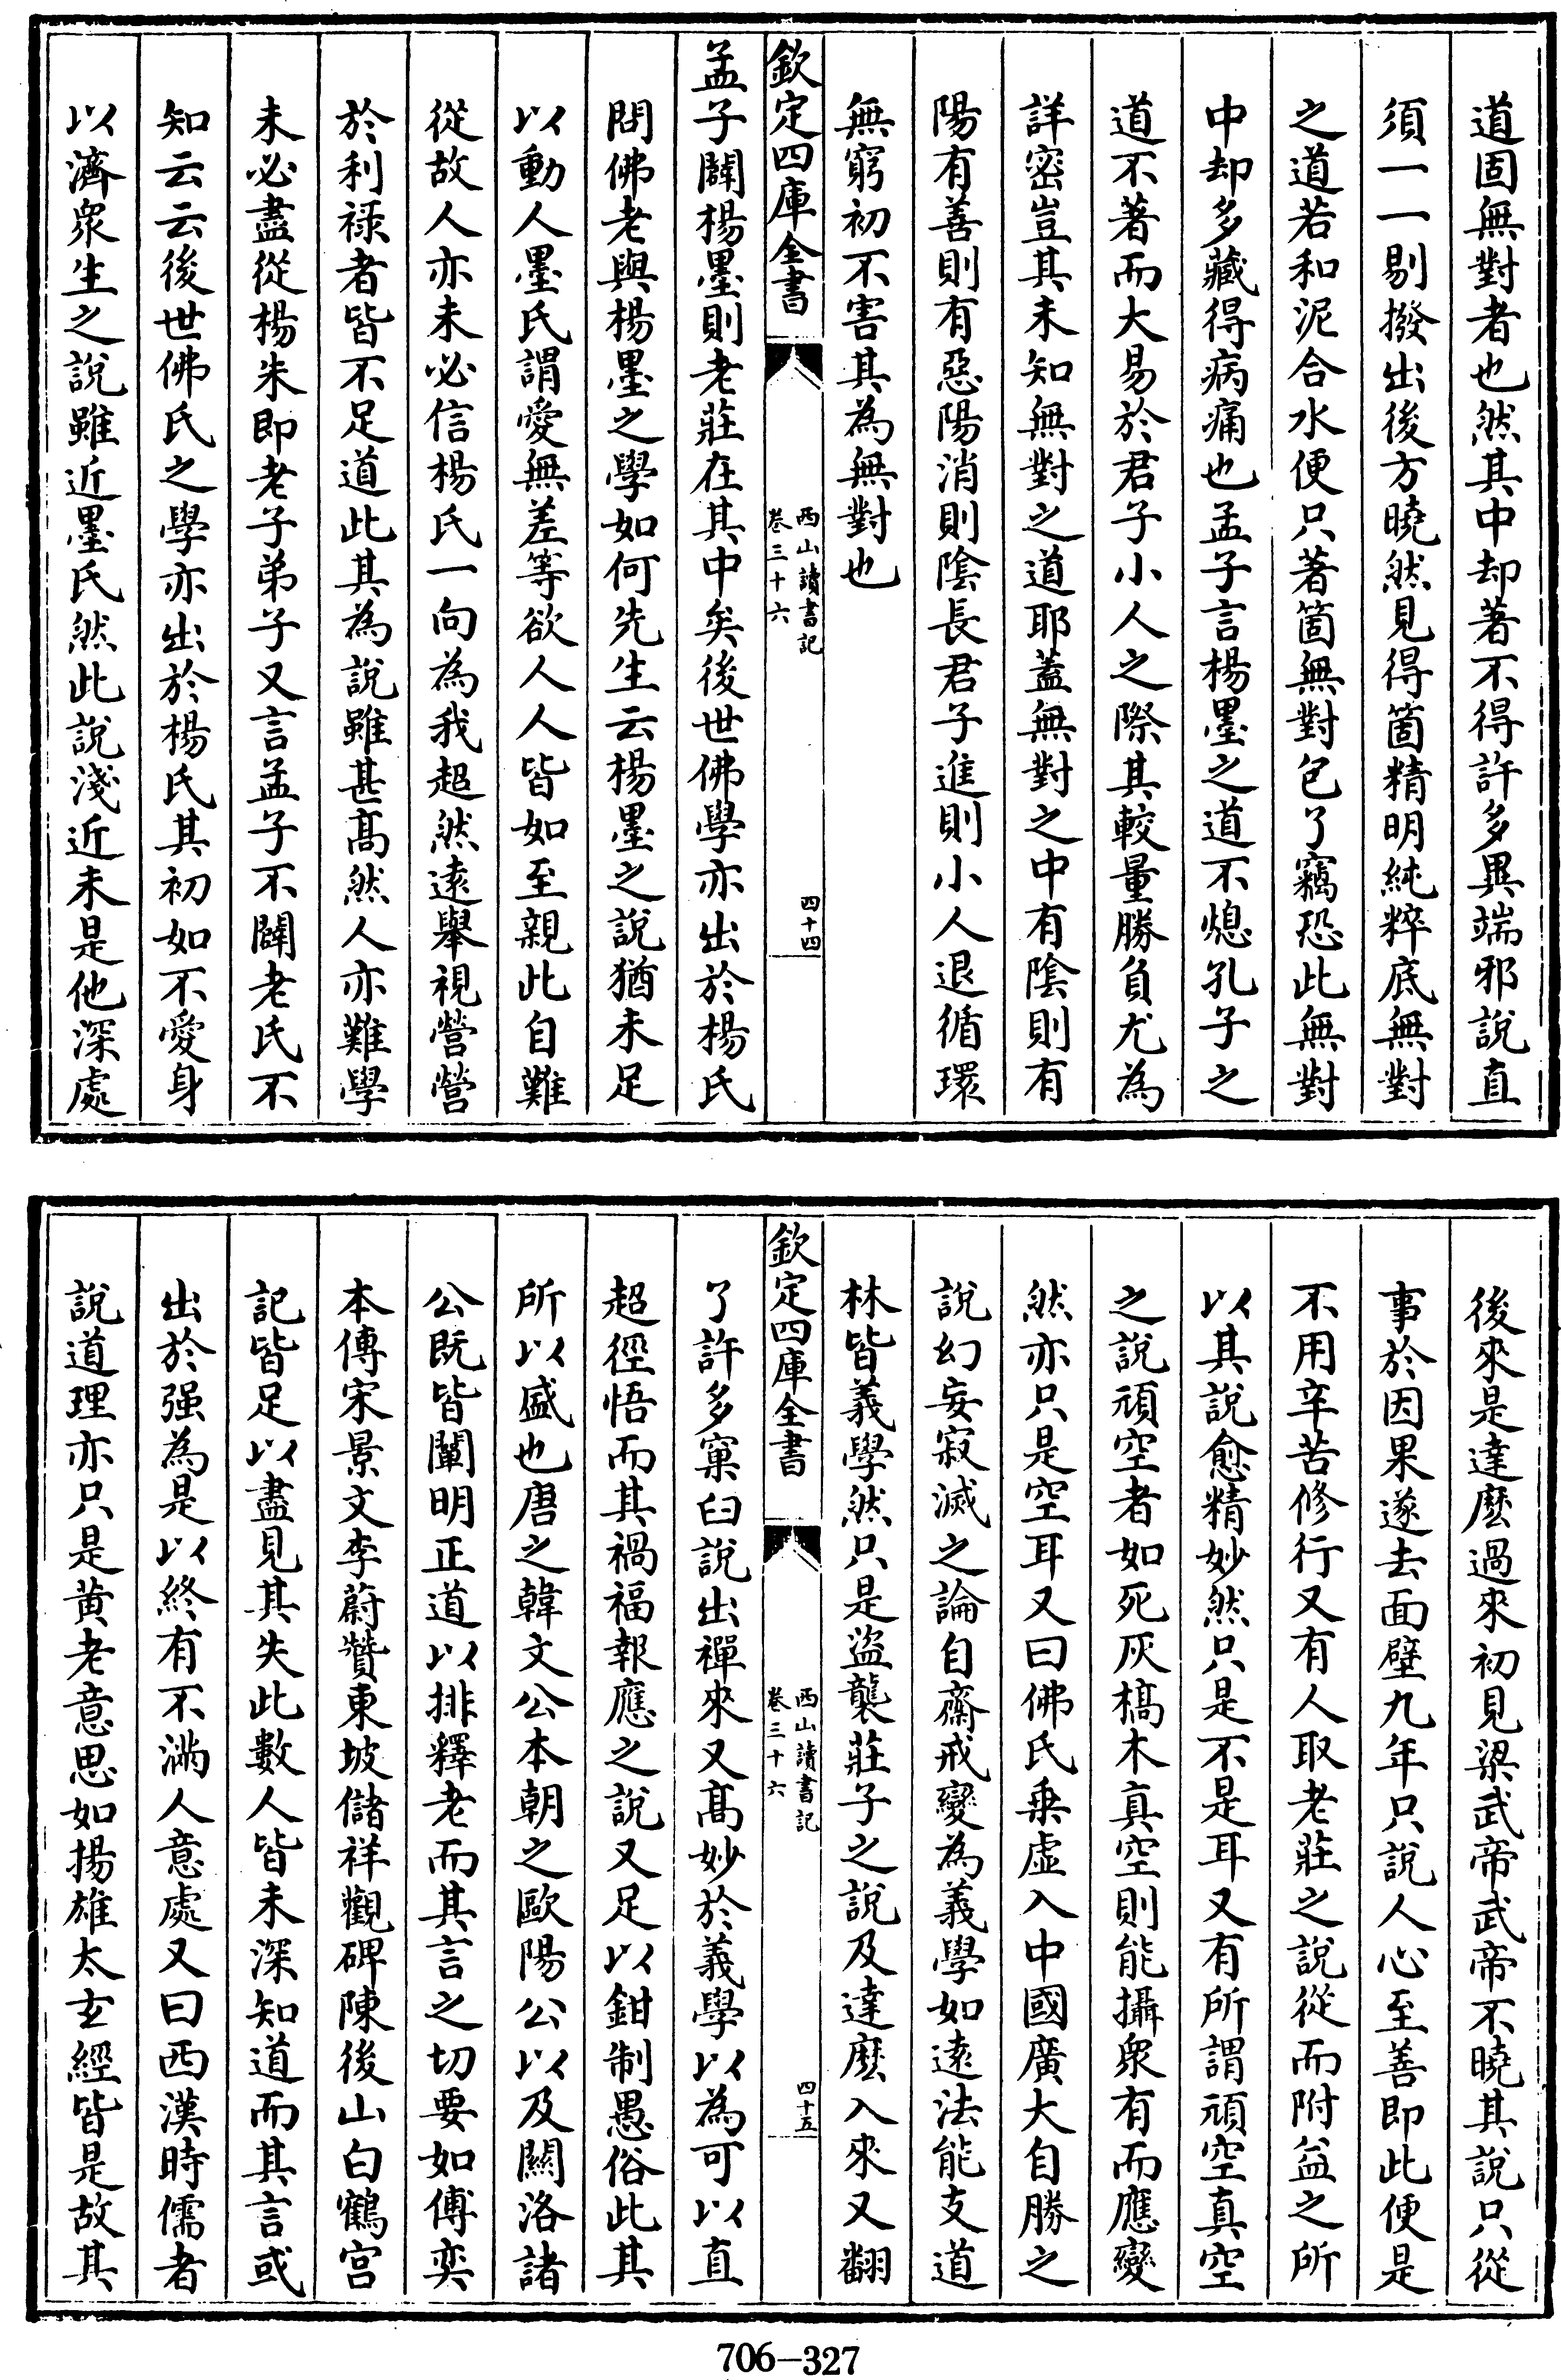 道固無對者也然其中却著不得許多異端邪說直
須一一剔撥出後方曉然見得箇精明純粹底無對
之道若和泥合水便只著箇無對包了竊恐此無對
中却多藏得病痛也孟子言楊墨之道不熄孔子之
道不著而大易於君子小人之際其較量勝負尤為
詳密豈其未知無對之道耶蓋無對之中有陰則有
陽有善則有惡陽消則陰長君子進則小人退循環
無窮初不害其為無對也
欽定四庫全書
西山讀書記
卷三十六
四十四
孟子闢楊墨則老莊在其中矣後世佛學亦出於楊氏
問佛老與楊墨之學如何先生云楊墨之說猶未足
以動人墨氏謂愛無差等欲人人皆如至親此自難
從故人亦未必信楊氏一向為我超然遠舉視營營
於利祿者皆不足道此其為說雖甚高然人亦難學
未必盡從楊朱即老子弟子又言孟子不闢老氏不
知云云後世佛氏之學亦出於楊氏其初如不愛身
以濟衆生之說雖近墨氏然此說淺近未是他深處
後來是達麼過來初見梁武帝武帝不曉其說只從
事於因果遂去面壁九年只說人心至善即此便是
不用辛苦修行又有人取老莊之說從而附益之所
以其說愈精妙然只是不是耳又有所謂頑空真空
之說頑空者如死灰槁木真空則能攝衆有而應變
然亦只是空耳又曰佛氏乗虛入中國廣大自勝之
說幻妄寂滅之論自齋戒變為義學如遠法能支道
林皆義學然只是盜襲莊子之說及達麽入來又翻
欽定四庫全書
西山讀書記
卷三十六
四十五
了許多窠臼說出禪來又高妙於義學以為可以直
超徑悟而其禍福報應之說又足以鉗制愚俗此其
所以盛也唐之韓文公本朝之歐陽公以及關洛諸
公既皆闡明正道以排釋老而其言之切要如傅奕
本傳宋景文李蔚贊東坡儲祥觀碑陳後山白鶴宫
記皆足以盡見其失此數人皆未深知道而其言或
出於强為是以終有不滿人意處又曰西漢時儒者
說道理亦只是黄老意思如揚雄太玄經皆是故其
706-327